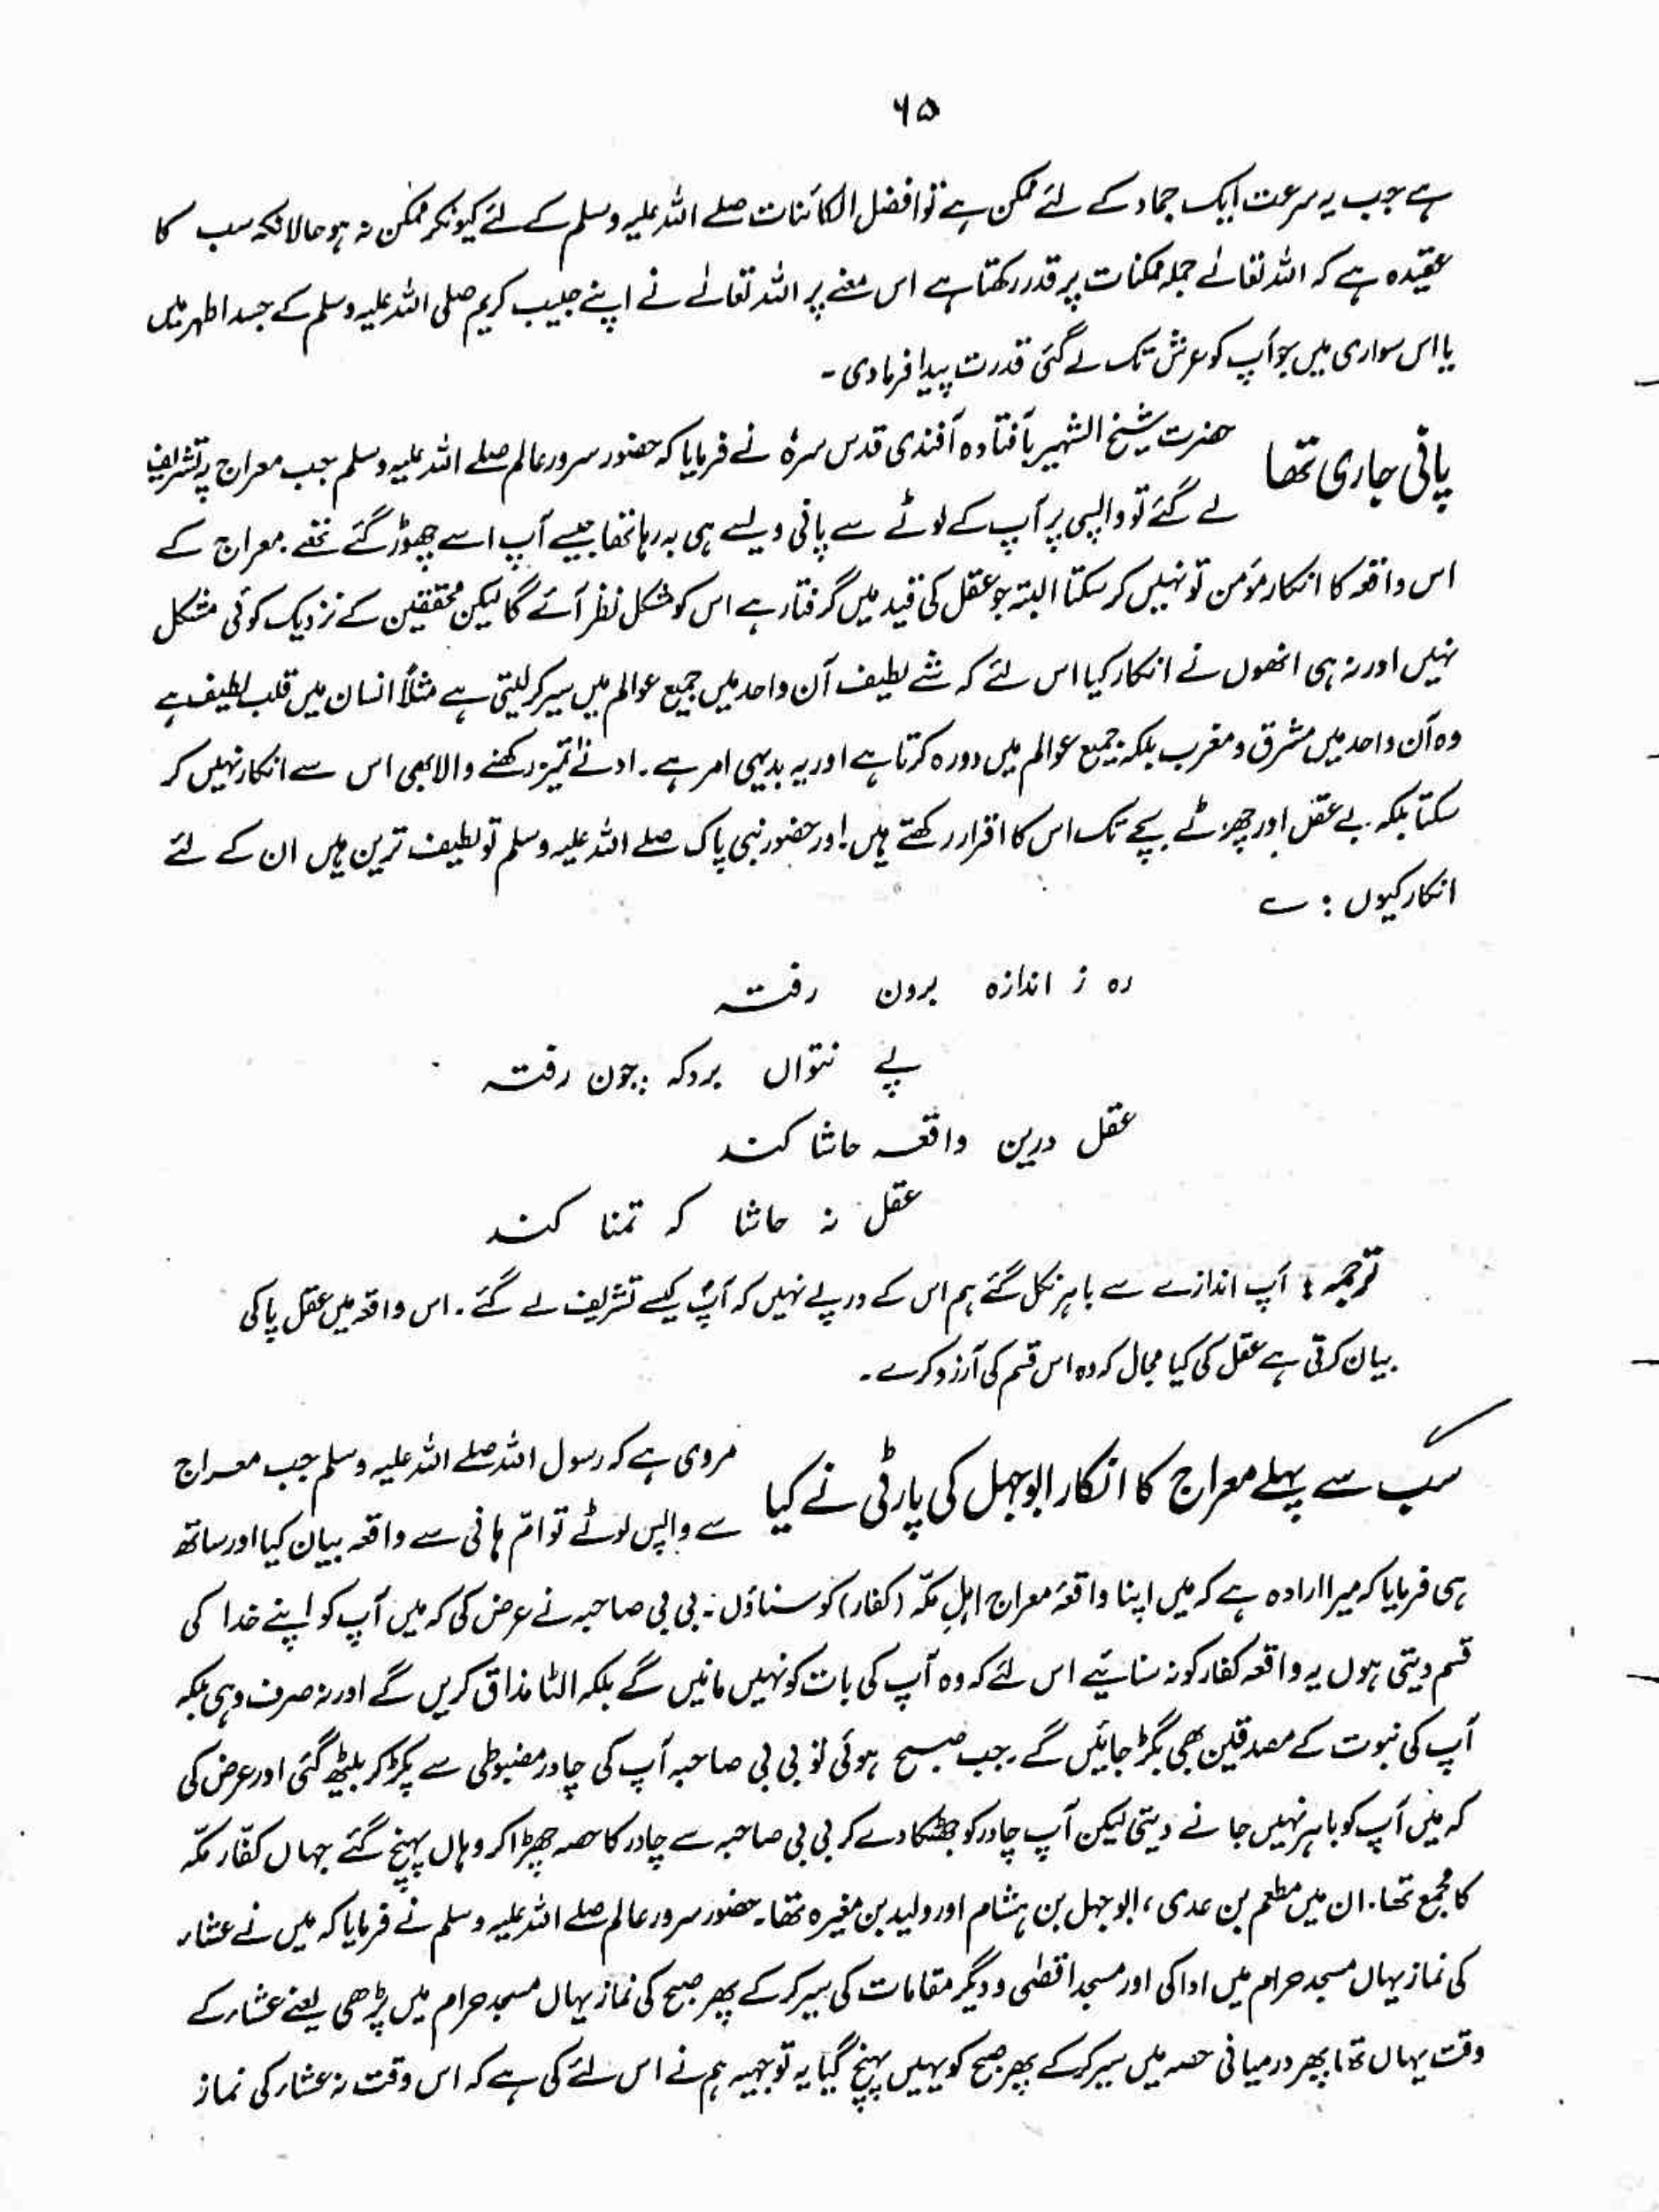 ۶۵
ہے جب یہ سرعت ایک جماد کے لئے ممکن ہے تو افضل الکائنات صلے اللہ علیہ وسلم کے لئے کیونکر ممکن نہ ہو حالانکہ سب کا
عقیدہ ہے کہ اللہ تعالےٰ جملہ ممکنات پر قدر رکھتا ہے اس معنے پر اللہ تعالےٰ نے اپنے حبیب کریم صلی اللہ علیہ وسلم کے جسد اطہر میں
یا اس سواری میں جو آپ کو عرش تک لے گئی قدرت پیدا فرما دی ۔
پانی جاری تھا
حضرت شیخ الشہیر بآفتادہ آفندی قدس سرہٗ نے فرمایا کہ حضور سرور عالم صلے اللہ علیہ وسلم جب معراج پر تشریف
لے گئے تو واپسی پر آپ کے لوٹے سے پانی ویسے ہی بہ رہا تھا جیسے آپ اسے چھوڑ گئے تھے۔ معراج کے
اس واقعہ کا انکار مؤمن تو نہیں کر سکتا البتہ جو عقل کی قید میں گرفتار ہے اس کو مشکل نظر آئے گا لیکن محققین کے نزدیک کوئی مشکل
نہیں اور نہ ہی انھوں نے انکار کیا اس لئے کہ شے لطیف آن واحد میں جمیع عوالم میں سیر کر لیتی ہے مثلاً انسان میں قلب لطیف ہے
وہ آن واحد میں مشرق و مغرب بلکہ جمیع عوالم میں دورہ کرتا ہے اور یہ بدیہی امر ہے۔ ادنےٰ تمیز رکھنے والا بھی اس سے انکار نہیں کر
سکتا بلکہ بے عقل اور چھوٹے بچے تک اس کا اقرار رکھتے ہیں۔ اور حضور نبی پاک صلے اللہ علیہ وسلم تو لطیف ترین ہیں ان کے لئے
انکار کیوں : ؎
رہ ز اندازہ برون رفتہ
پے نتواں برد کہ چون رفتہ
عقل درین واقعہ حاشا کند
عقل نہ حاشا کہ تمنا کند
ترجمہ : آپ اندازے سے باہر نکل گئے ہم اس کے درپے نہیں کہ آپؐ کیسے تشریف لے گئے۔ اس واقعہ میں عقل پاکی
بیان کرتی ہے عقل کی کیا مجال کہ وہ اس قسم کی آرزو کرے۔
سب سے پہلے معراج کا انکار ابو جہل کی پارٹی نے کیا
مروی ہے کہ رسول اللہ صلے اللہ علیہ وسلم جب معراج
سے واپس لوٹے تو امّ ہانی سے واقعہ بیان کیا اور ساتھ
ہی فرمایا کہ میرا ارادہ ہے کہ میں اپنا واقعۂ معراج اہلِ مکّہ (کفار) کو سناؤں۔ بی بی صاحبہ نے عرض کی کہ میں آپ کو اپنے خدا کی
قسم دیتی ہوں یہ واقعہ کفار کو نہ سنائیے اس لئے کہ وہ آپ کی بات کو نہیں مانیں گے بلکہ الٹا مذاق کریں گے اور نہ صرف وہی بلکہ
آپ کی نبوت کے مصدقین بھی بگڑ جائیں گے۔ جب صبح ہوئی تو بی بی صاحبہ آپ کی چادر مضبوطی سے پکڑ کر بیٹھ گئی اور عرض کی
کہ میں آپ کو باہر نہیں جانے دیتی لیکن آپ چادر کو جھٹکا دے کر بی بی صاحبہ سے چادر کا حصہ چھڑا کر وہاں پہنچ گئے جہاں کفّار مکّہ
کا مجمع تھا۔ ان میں مطعم بن عدی ، ابو جہل بن ہشام اور ولید بن مغیرہ تھا۔ حضور سرور عالم صلے اللہ علیہ وسلم نے فرمایا کہ میں نے عشاء
کی نماز یہاں مسجد حرام میں ادا کی اور مسجد اقصٰی و دیگر مقامات کی سیر کر کے پھر صبح کی نماز یہاں مسجد حرام میں پڑھی یعنے عشاء کے
وقت یہاں تھا پھر درمیانی حصہ میں سیر کر کے پھر صبح کو یہیں پہنچ گیا یہ توجیہہ ہم نے اس لئے کی ہے کہ اس وقت نہ عشاء کی نماز